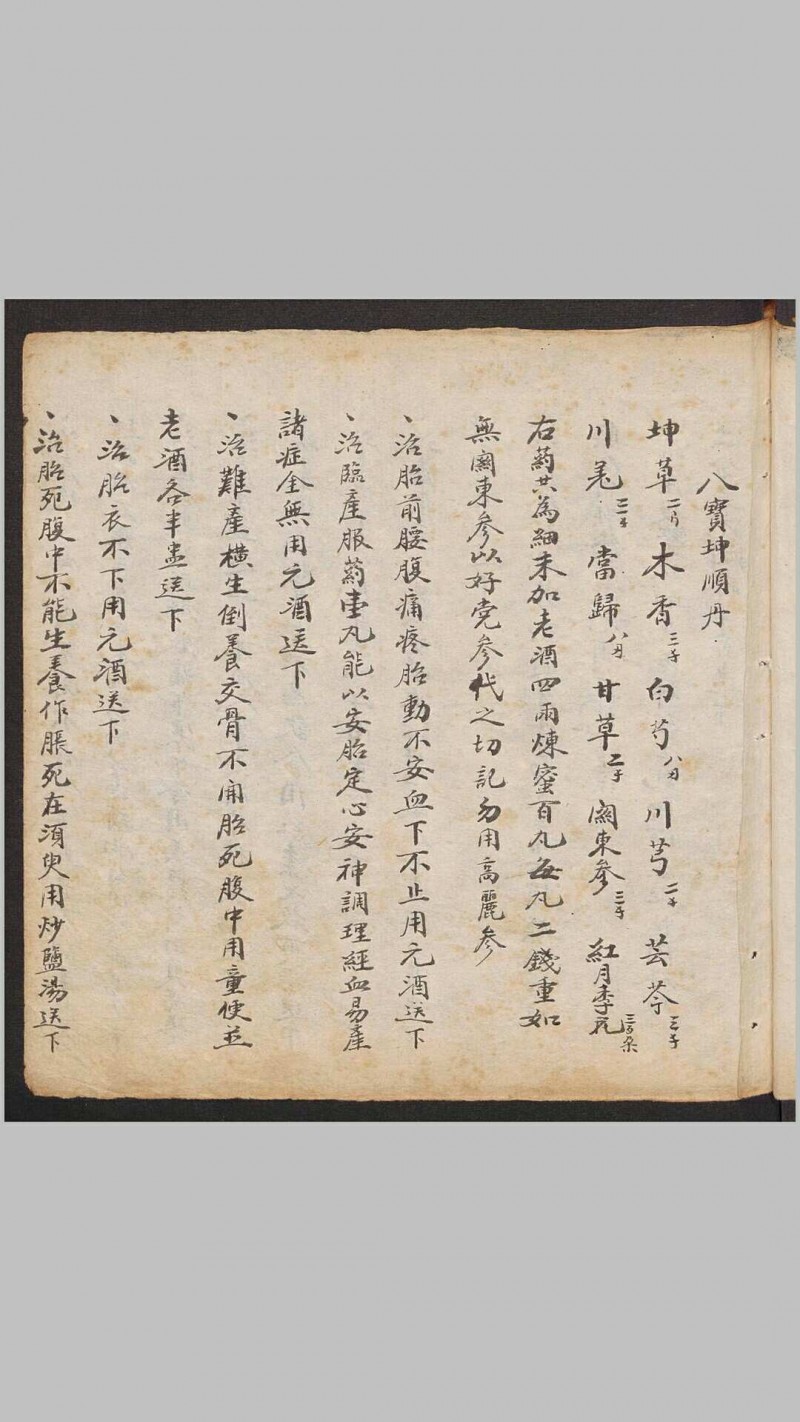 八寶坤順丹
坤草 木香三子 白芍八 川芎二子 芸苓三子
川羌 當歸八 甘草二子 関東參三子 紅月季花三朵
右药共為細末加老酒四両煉蜜百丸每丸二錢重如
無関東參以好党參代之切記勿用高麗參
丶治胎前腰腹痛疼胎動不安血下不止用元酒送下
丶治臨產服药壹丸能以安胎定心安神調理經血易產
諸症全無用元酒送下
丶治難產橫生倒養交骨不開胎死腹中用童便並
老酒各半盅送下
丶治胎衣不下用元酒送下
丶治胎死腹中不能生養作脹死在須臾用炒鹽湯送下